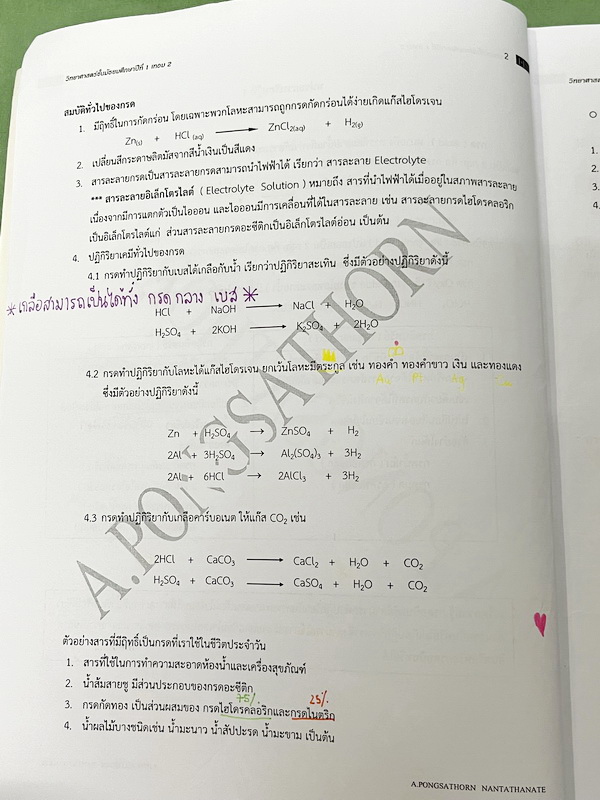 วิทยาศาสตร์ชั้นมัธยมศึกษาปีที่ 1 เทอม 2
2
สมบัติทั่วไปของกรด
1. มีฤทธิ์ในการกัดกร่อน โดยเฉพาะพวกโลหะสามารถถูกกรดกัดกร่อนได้ง่ายเกิดแก๊สไฮโดรเจน
Zn(s) + HCl (aq) ⟶ ZnCl2(aq) + H2(g)
2. เปลี่ยนสีกระดาษลิตมัสจากสีน้ำเงินเป็นสีแดง
3. สารละลายกรดเป็นสารละลายกรดสามารถนำไฟฟ้าได้ เรียกว่า สารละลาย Electrolyte
*** สารละลายอิเล็กโตรไลต์ ( Electrolyte Solution ) หมายถึง สารที่นำไฟฟ้าได้เมื่ออยู่ในสภาพสารละลาย
เนื่องจากมีการแตกตัวเป็นไอออน และไอออนมีการเคลื่อนที่ได้ในสารละลาย เช่น สารละลายกรดไฮโดรคลอริก
เป็นอิเล็กโตรไลต์แก่ ส่วนสารละลายกรดอะซีติกเป็นอิเล็กโตรไลต์อ่อน เป็นต้น
4. ปฏิกิริยาเคมีทั่วไปของกรด
4.1 กรดทำปฏิกิริยากับเบสได้เกลือกับน้ำ เรียกว่าปฏิกิริยาสะเทิน ซึ่งมีตัวอย่างปฏิกิริยาดังนี้
*เกลือสามารถเป็นได้ทั้ง กรด กลาง เบส *
HCl + NaOH ⟶ NaCl + H2O
H2SO4 + 2KOH ⟶ K2SO4 + 2H2O
4.2 กรดทำปฏิกิริยากับโลหะได้แก๊สไฮโดรเจน ยกเว้นโลหะมีตระกูล เช่น ทองคำ ทองคำขาว เงิน และทองแดง
Au Pt Ag Cu
ซึ่งมีตัวอย่างปฏิกิริยาดังนี้
Zn + H2SO4 ⟶ ZnSO4 + H2
2Al + 3H2SO4 ⟶ Al2(SO4)3 + 3H2
2Al + 6HCl ⟶ 2AlCl3 + 3H2
4.3 กรดทำปฏิกิริยากับเกลือคาร์บอเนต ให้แก๊ส CO2 เช่น
2HCl + CaCO3 ⟶ CaCl2 + H2O + CO2
H2SO4 + CaCO3 ⟶ CaSO4 + H2O + CO2
ตัวอย่างสารที่มีฤทธิ์เป็นกรดที่เราใช้ในชีวิตประจำวัน
1. สารที่ใช้ในการทำความสะอาดห้องน้ำและเครื่องสุขภัณฑ์
2. น้ำส้มสายชู มีส่วนประกอบของกรดอะซีติก
75% 25%
3. กรดกัดทอง เป็นส่วนผสมของ กรดไฮโดรคลอริกและกรดไนตริก
4. น้ำผลไม้บางชนิดเช่น น้ำมะนาว น้ำสัปปะรด น้ำมะขาม เป็นต้น
A.PONGSATHORN
A.PONGSATHORN NANTATHANATE
วิทยาศาสตร์
1.
2.
3.
4.